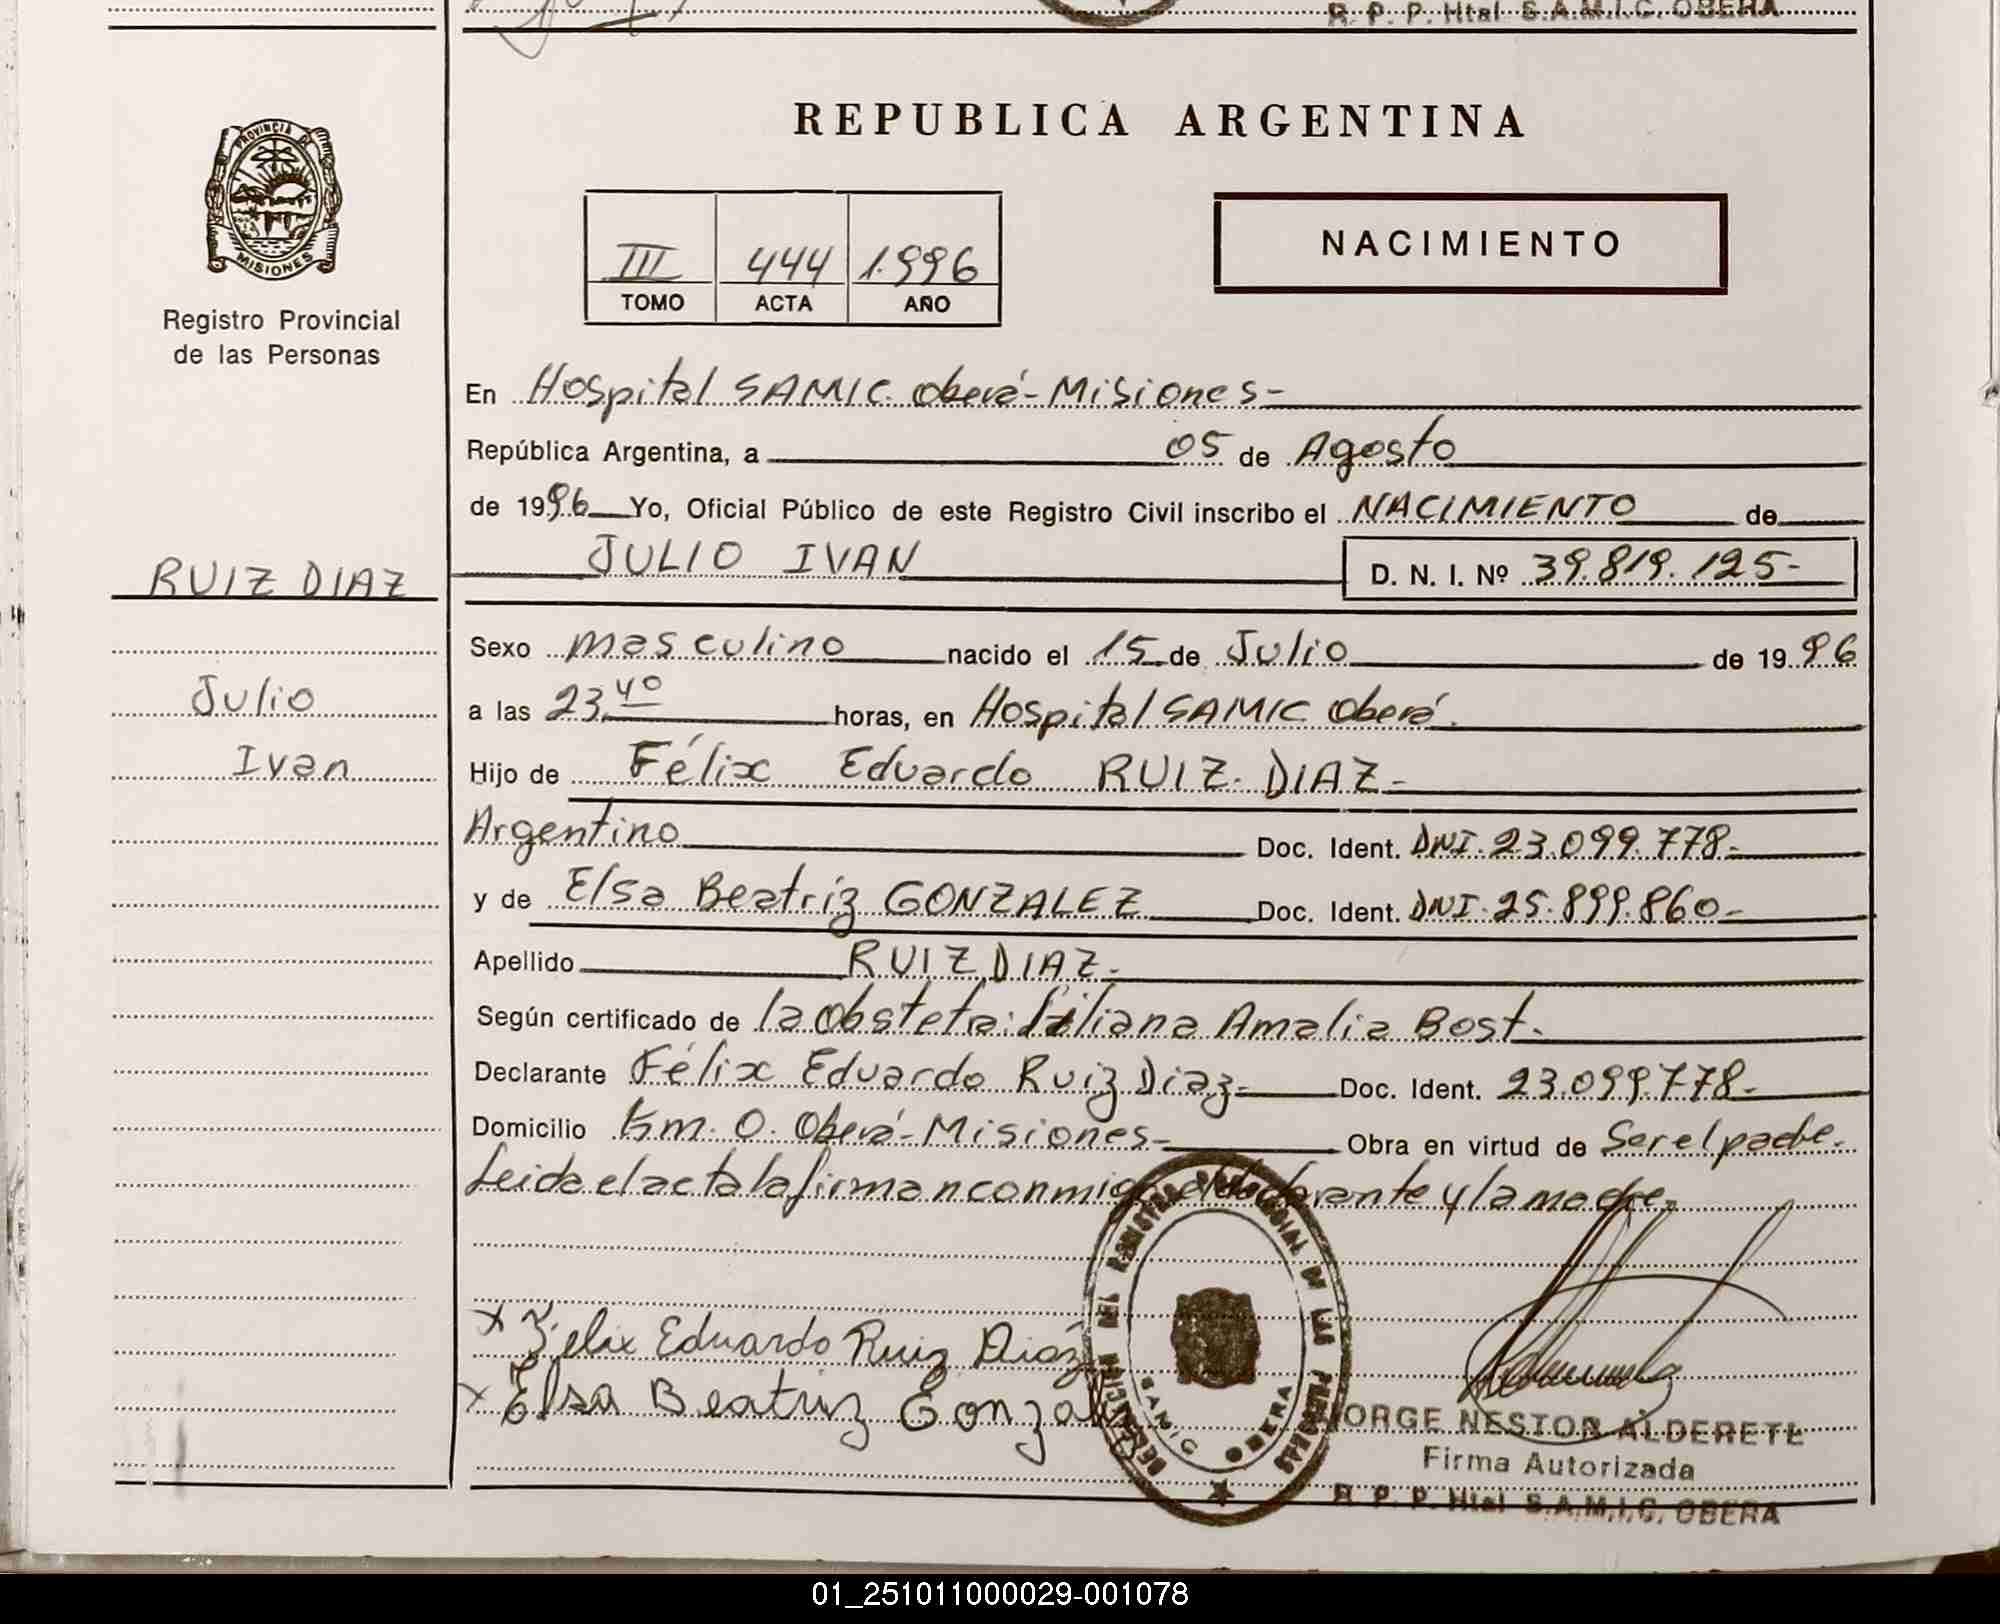 R. P. P. Htal S.A.M.I.C. OBERA
PROVINCIA DE
MISIONES
Registro Provincial
de las Personas
RUIZ DIAZ
Julio
Ivan
REPUBLICA ARGENTINA
III 444 1.996
TOMO ACTA AÑO
NACIMIENTO
En Hospital SAMIC. Oberá-Misiones-
República Argentina, a 05 de Agosto
de 1996 Yo, Oficial Público de este Registro Civil inscribo el NACIMIENTO de
JULIO IVAN D. N. I. Nº 39.819.125-
Sexo masculino nacido el 15 de Julio de 1996
a las 23,40 horas, en Hospital SAMIC Oberá.
Hijo de Félix Eduardo RUIZ DIAZ-
Argentino Doc. Ident. DNI.23.099.778-
y de Elsa Beatriz GONZALEZ Doc. Ident. DNI.25.899.860-
Apellido RUIZ DIAZ-
Según certificado de la obsteta: Liliana Amalia Bost.
Declarante Félix Eduardo Ruiz Diaz- Doc. Ident. 23.099.778-
Domicilio Km. 0. Oberá-Misiones- Obra en virtud de Ser el padre.
Leida el acta la firman conmigo el declarante y la madre.
x Felix Eduardo Ruiz Diaz
x Elsa Beatriz Gonzal
DELEGACION DEL REGISTRO PROVINCIAL DE LAS PERSONAS
SAMIC OBERA
JORGE NESTOR ALDERETE
Firma Autorizada
R. P. P. Htal S.A.M.I.C. OBERA
01_251011000029-001078